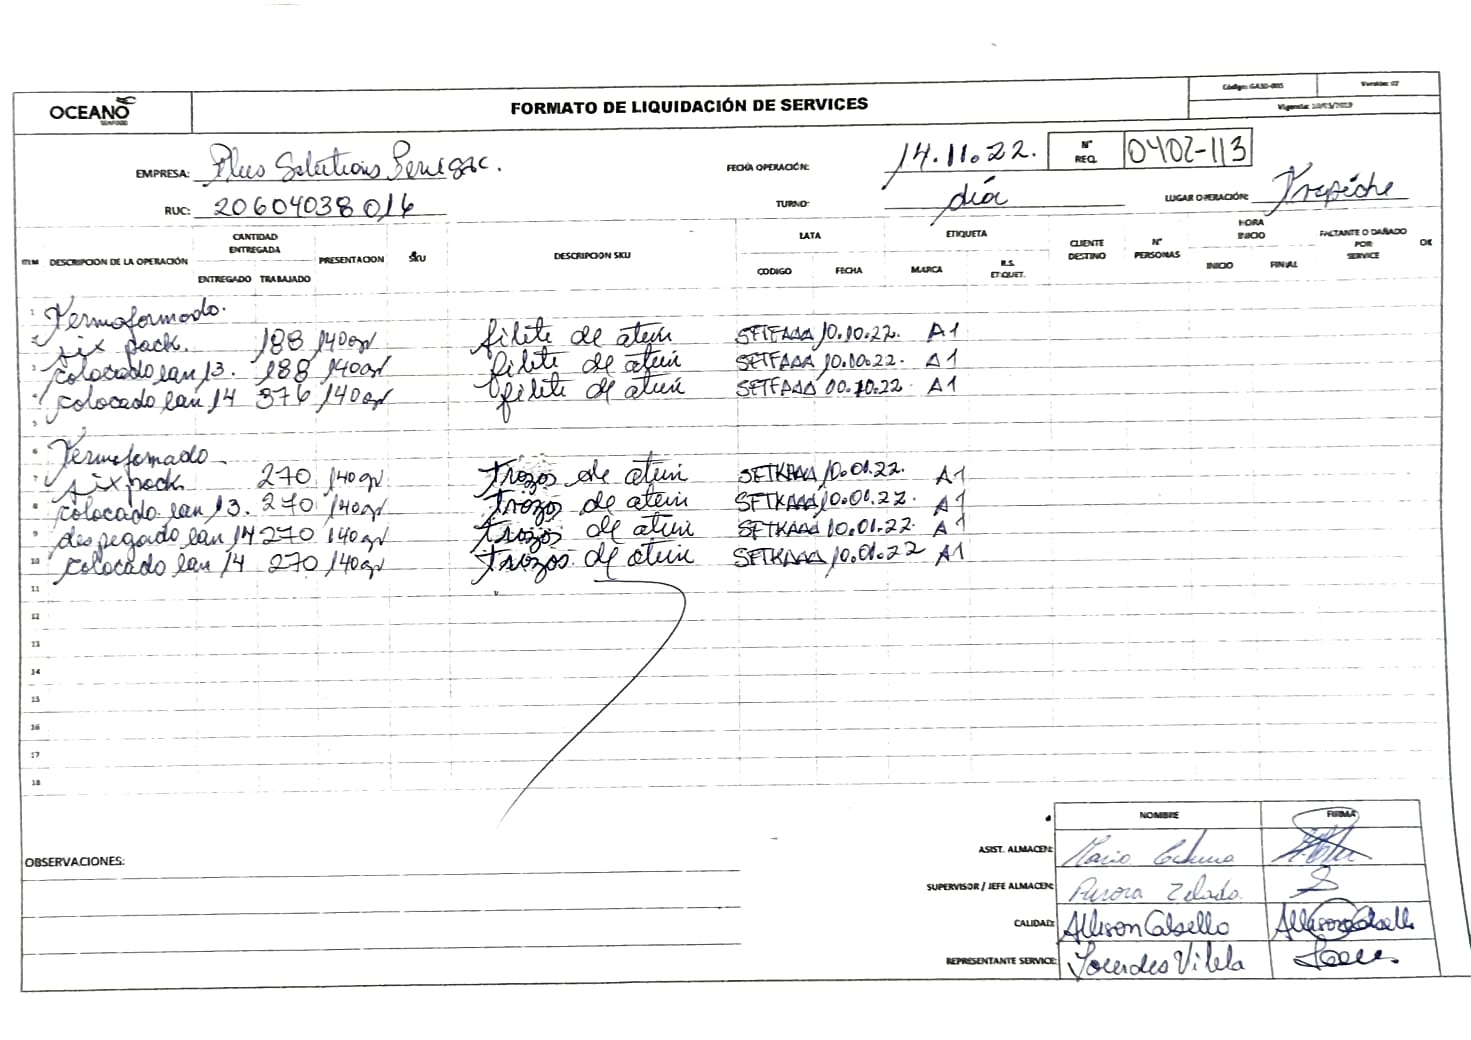 OCEANO
SEAFOOD
FORMATO DE LIQUIDACIÓN DE SERVICES
Código: GASO-005
Versión: 02
Vigencia: 10/03/2019
EMPRESA: Plus Solutions Peru sac.
FECHA OPERACIÓN: 14.11.22.
N° REQ. 0402-113
RUC: 20604038016
TURNO: día
LUGAR OPERACIÓN: Trapiche
ITEM DESCRIPCION DE LA OPERACIÓN CANTIDAD ENTREGADA PRESENTACION SKU DESCRIPCION SKU LATA ETIQUETA CLIENTE DESTINO N° PERSONAS HORA INICIO FALTANTE O DAÑADO POR SERVICE OK
ENTREGADO TRABAJADO CODIGO FECHA MARCA R.S. ETIQUET. INICIO FINAL
1 Termoformado.
2 six pack. 188 140gr filete de atún SETFAAA 10.10.22. A1
3 colocado lan 13. 188 140gr filete de atún SETFAAA 10.10.22. A1
4 colocado lan 14 376 140gr filete de atún SETFAAA 10.22 A1
5
6 Termofomado
7 six pack 270 140gr trozos de atún SETKAAA 10.01.22. A1
8 colocado lan 13. 270 140gr trozos de atún SETKAAA 10.01.22. A1
9 despegado lan 14 270 140gr trozos de atún SETKAAA 10.01.22. A1
10 colocado lan 14 270 140gr trozos de atún SETKAAA 10.01.22 A1
11
12
13
14
15
16
17
18
NOMBRE FIRMA
OBSERVACIONES:
ASIST. ALMACEN: Mario
SUPERVISOR / JEFE ALMACEN: Aurora Zelada.
CALIDAD: Allison Calsello
REPRESENTANTE SERVICE: Lourdes Vilela